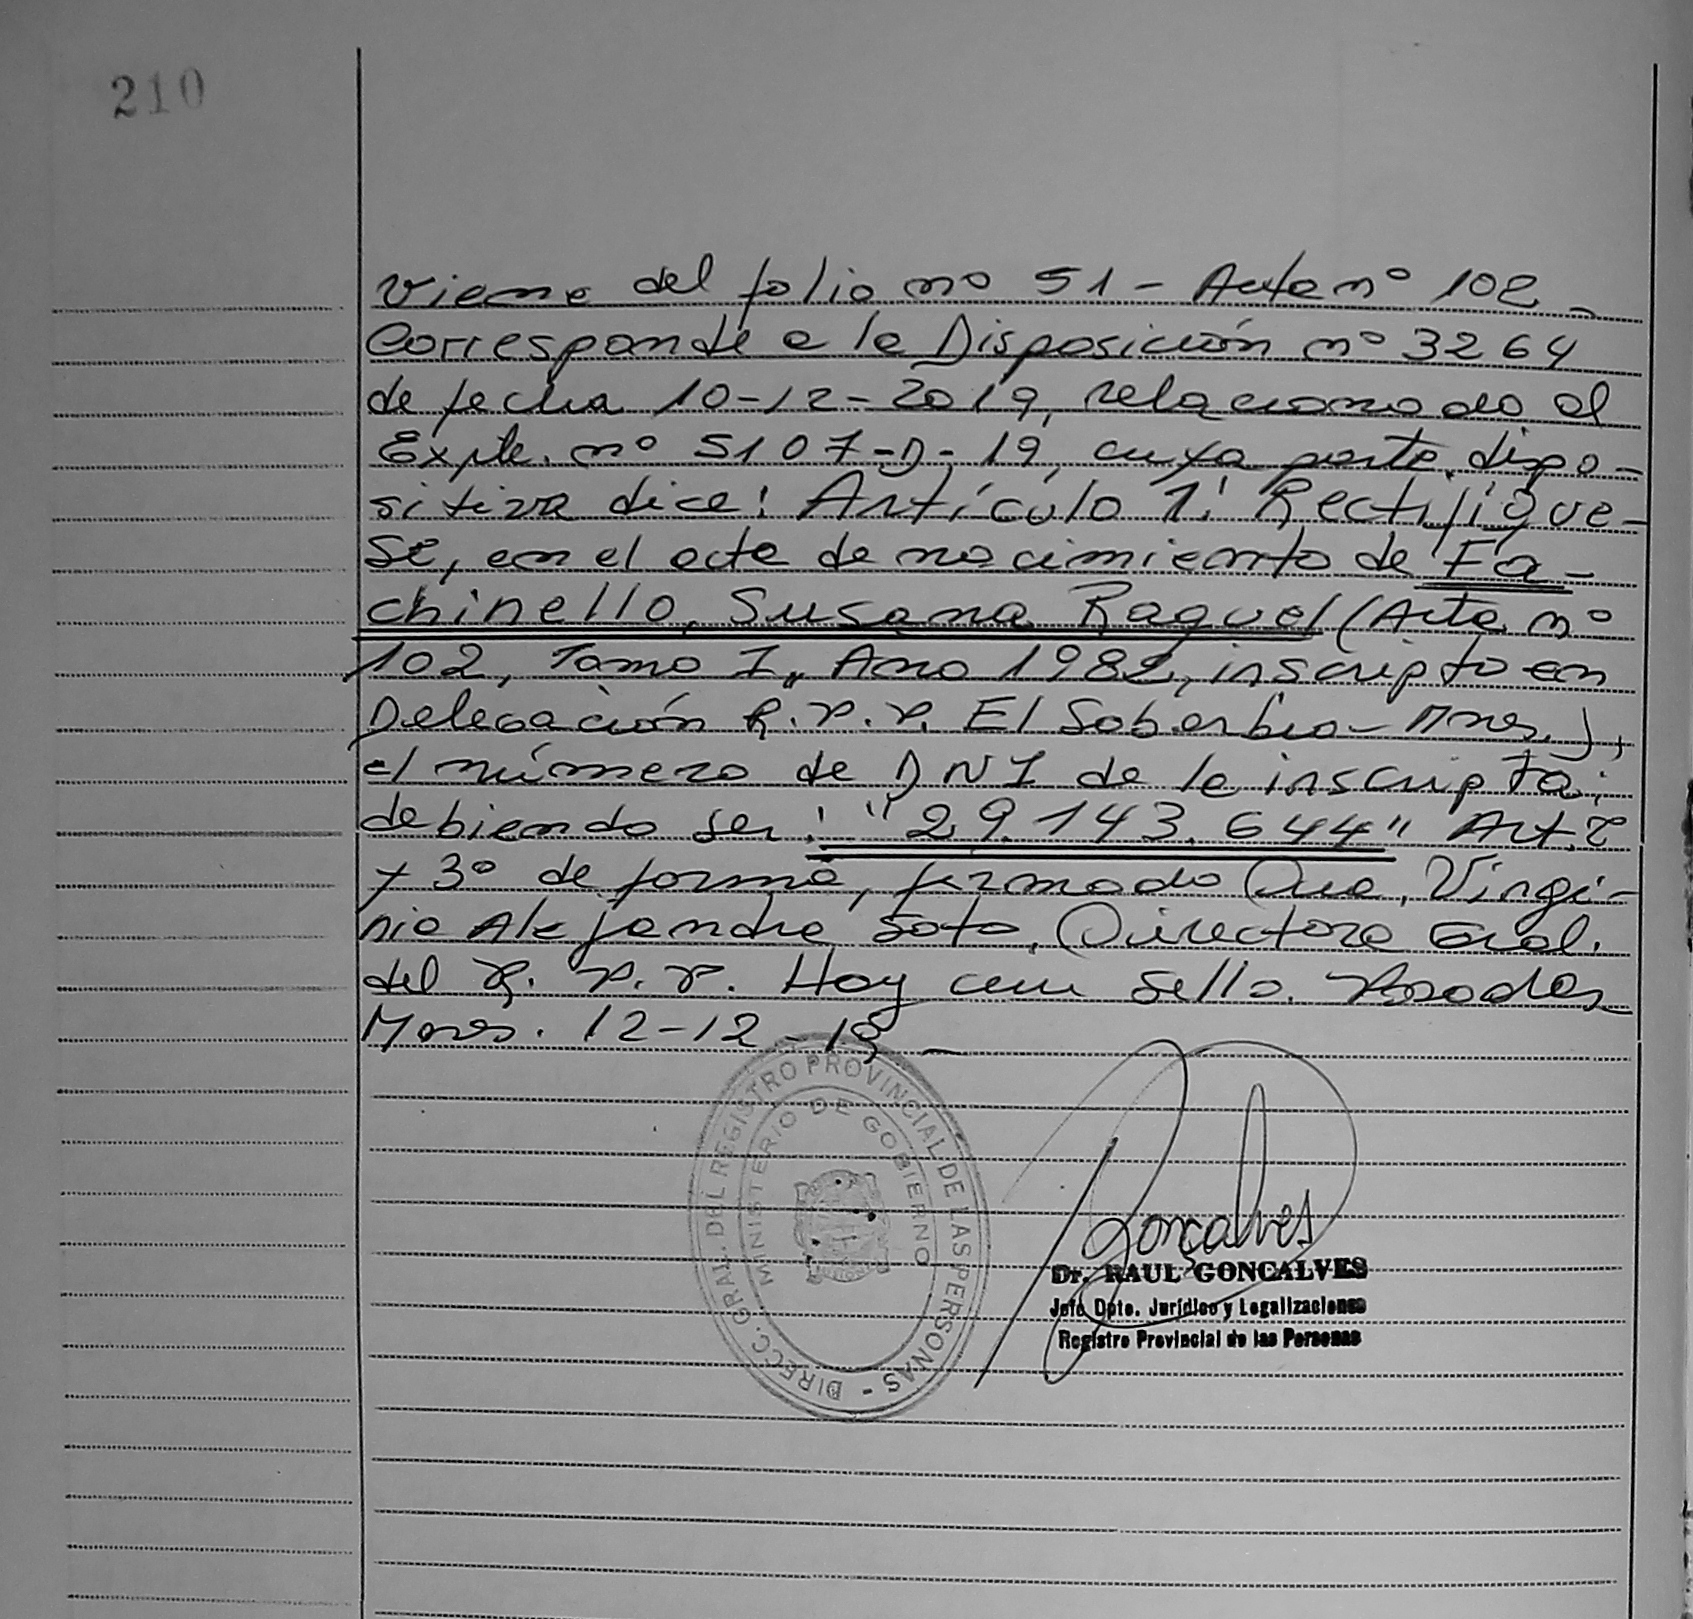 210
Viene del folio nº 51 - Acta nº 102 -
Corresponde a la Disposición nº 3264
de fecha 10-12-2019, relacionado al
Expte. nº 5107-D-19, cuya parte dispo-
sitiva dice: Artículo 1: Rectifíque-
se, en el acta de nacimiento de Fa-
chinello, Susana Raquel (Acta nº
102, Tomo I, Año 1982, inscripto en
Delegación R.P.P. El Soberbio - Mnes.),
el número de DNI de la inscripta;
debiendo ser: "29.143.644" Art. 2
y 3º de forma, firmado Dra. Virgi-
nia Alejandra Soto, Directora Gral.
del R.P.P. Hay un sello. Posadas
Mnes. 12-12-19 -
DIRECC. GRAL. DEL REGISTRO PROVINCIAL DE LAS PERSONAS -
MINISTERIO DE GOBIERNO
Goncalves
Dr. RAUL GONCALVES
Jefe Dpto. Jurídico y Legalizaciones
Registro Provincial de las Personas